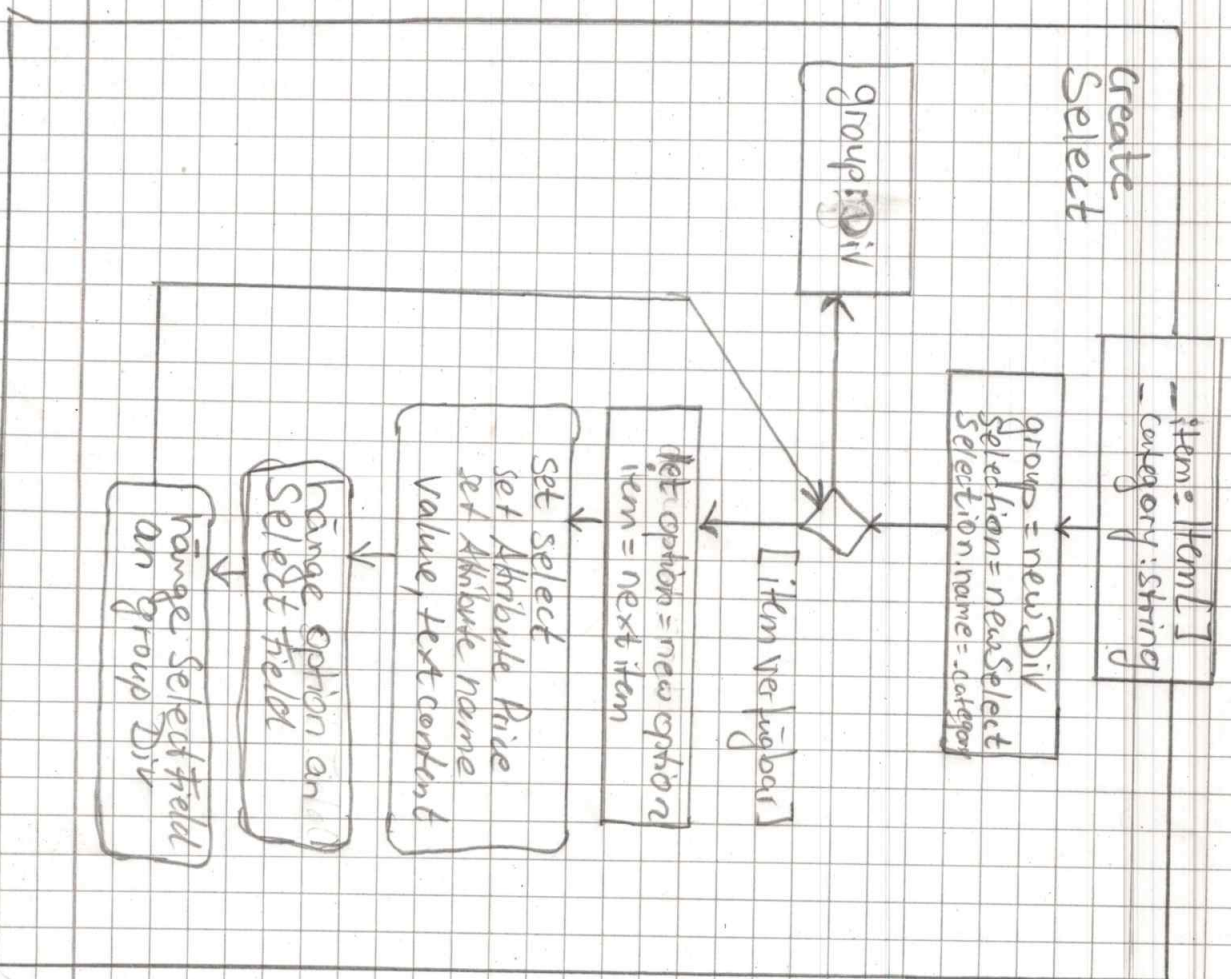 Create
Select
_item: Item[]
_category: string
group = new Div
selection = new Select
selection.name = _category
[item verfügbar]
group: Div
let option = new option
item = next item
set select
set Attribute Price
set Attribute name
value, text content
hänge option an
Select field
hänge Select field
an group Div